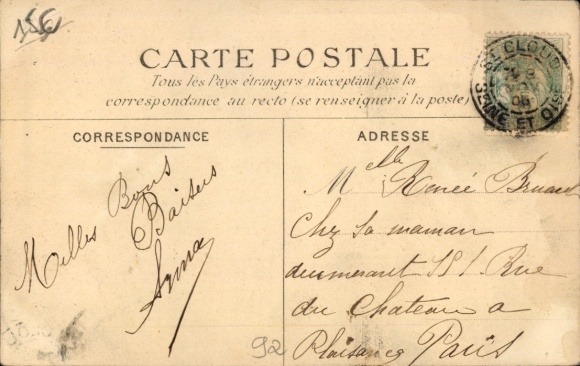 156
CARTE POSTALE
Tous les Pays étrangers n'acceptant pas la
correspondance au recto (se renseigner à la poste)
CLOUD
06
SEINE ET OISE
CORRESPONDANCE
Milles Bons
Baisers
ADRESSE
Melle Renée
Chez sa maman
demeurant 151 Rue
du Chateau a
Plaisance Paris
92